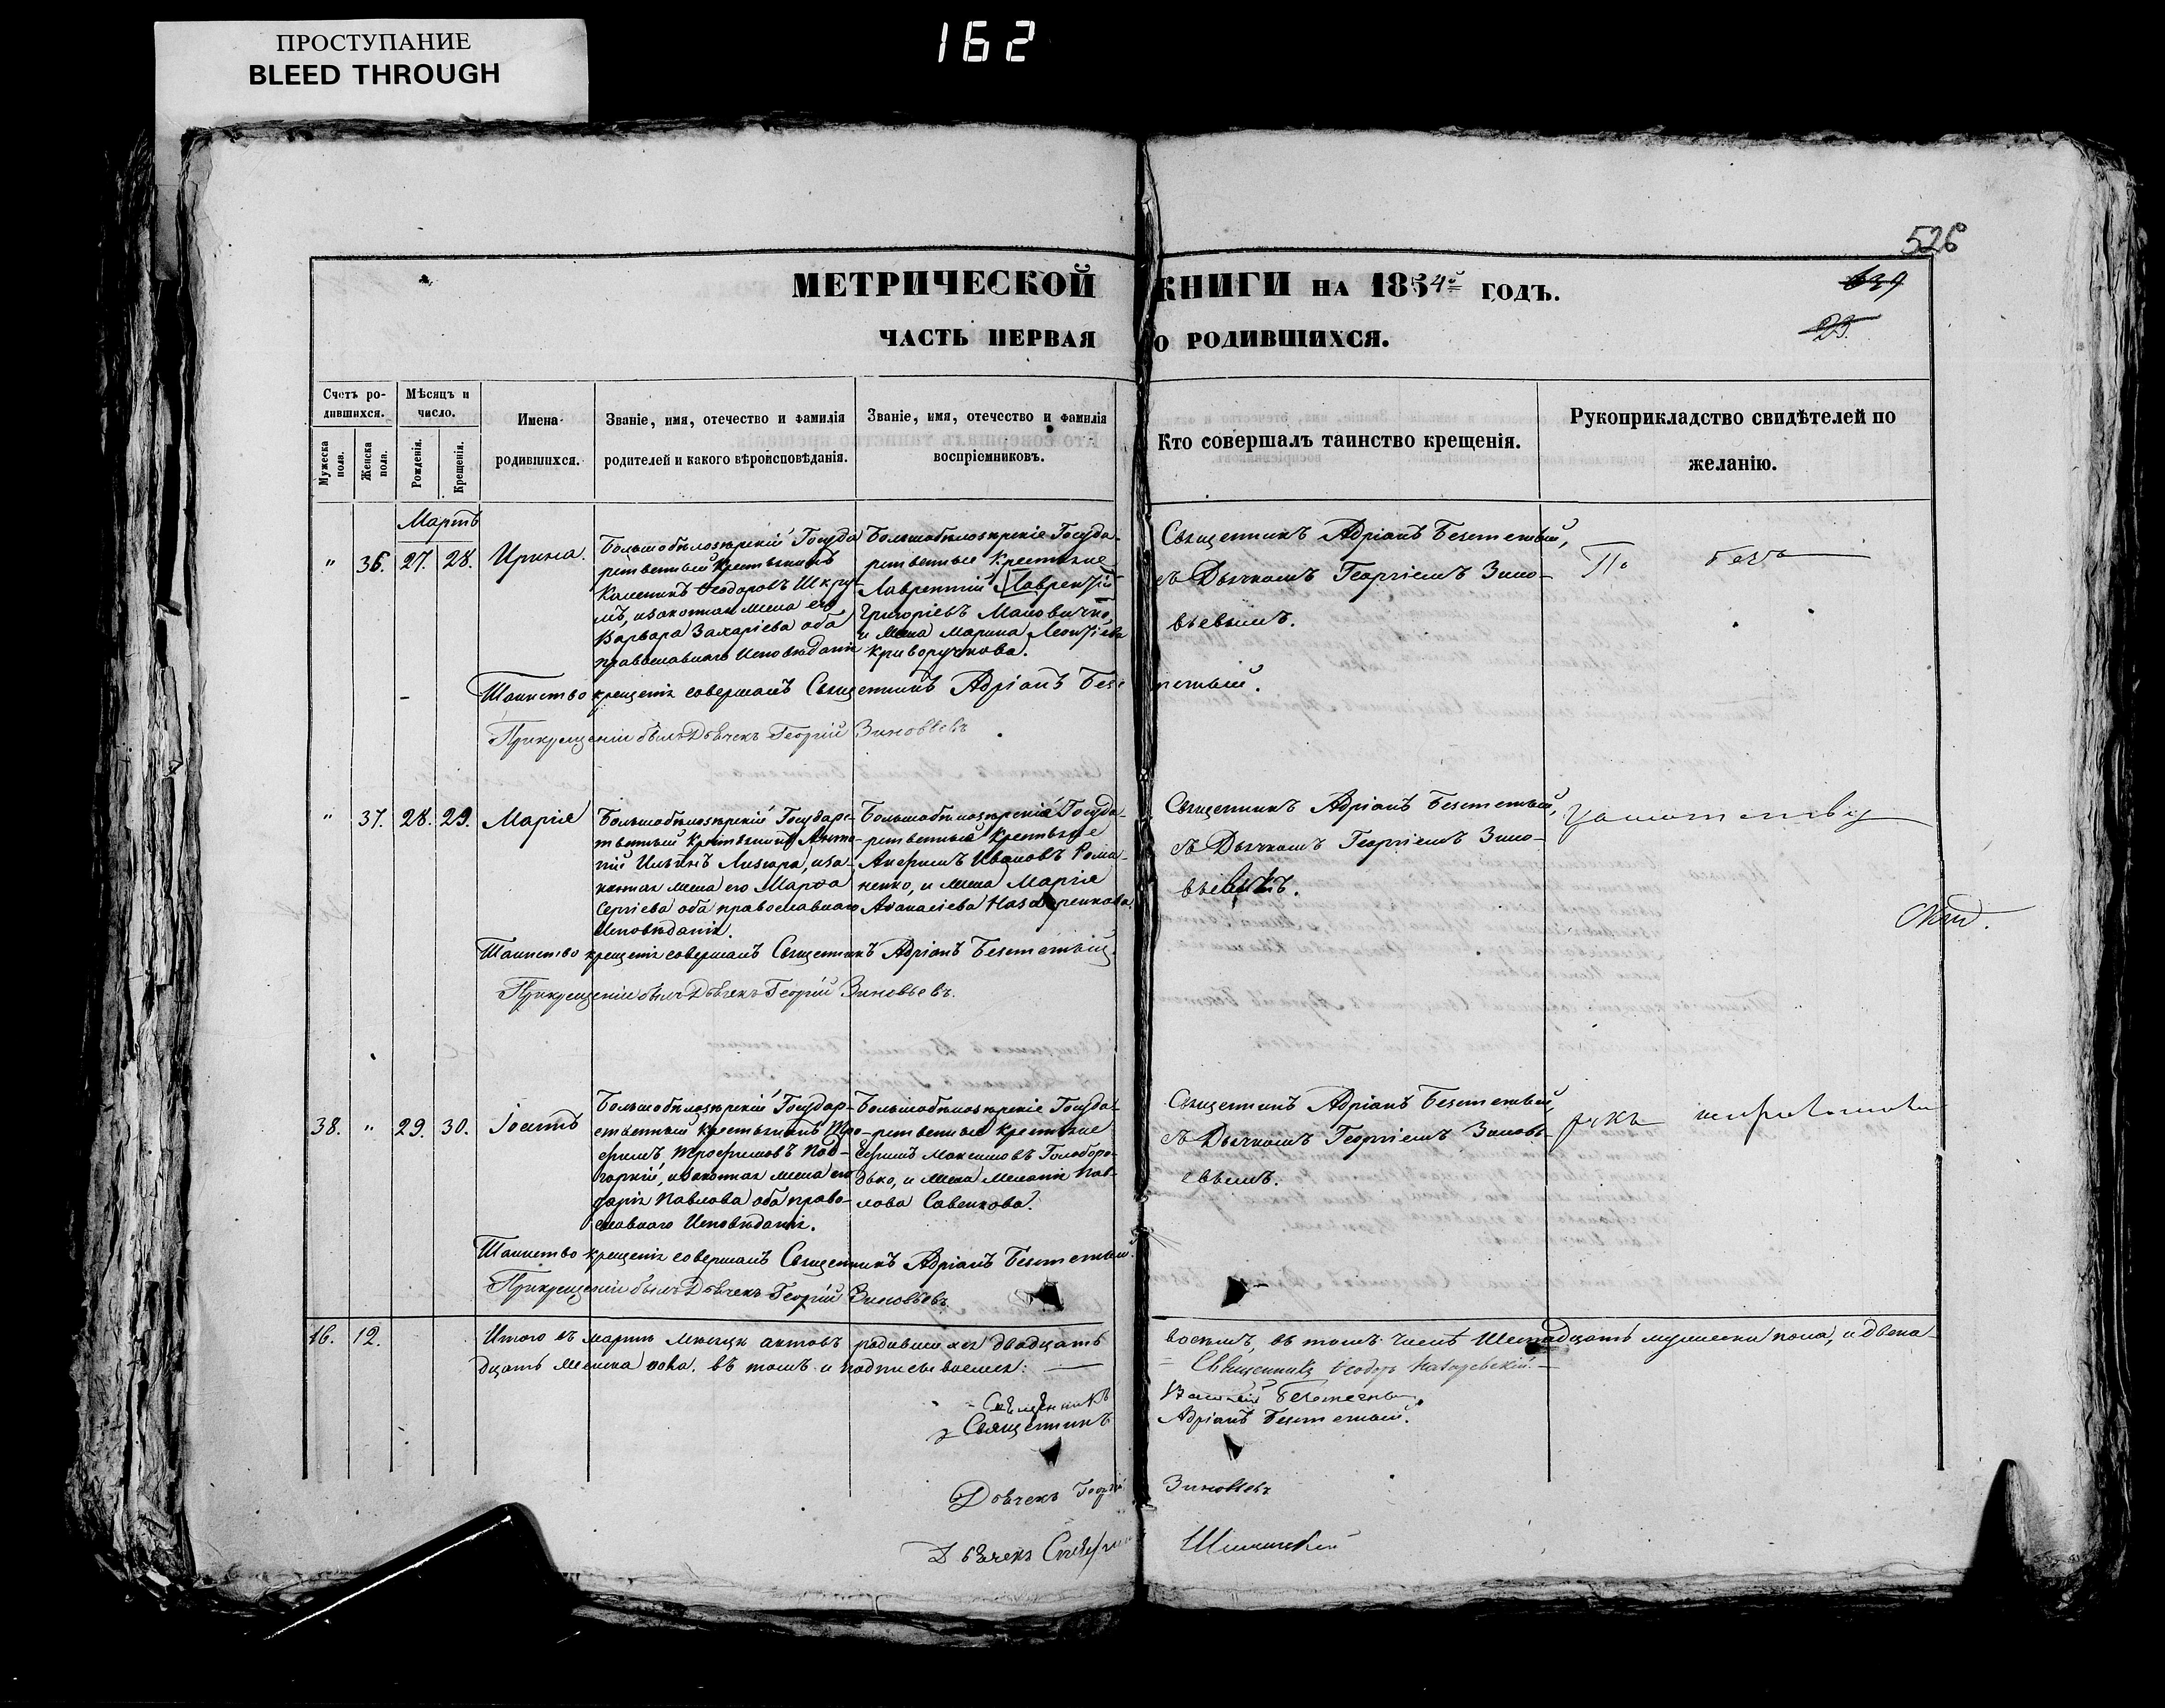 162
ПРОСТУПАНИЕ
BLEED THROUGH
526
МЕТРИЧЕСКОЙ КНИГИ НА 1854й ГОДЪ.
639
ЧАСТЬ ПЕРВАЯ О РОДИВШИХСЯ.
23.
Счетъ ро-
дившихся.
Мужеска пола.
Женска пола.
Мѣсяцъ и
число.
Рожденія.
Крещенія.
Имена
родившихся.
Званіе, имя, отечество и фамилія
родителей и какого вѣроисповѣданія.
Званіе, имя, отечество и фамилія
воспріемниковъ.
Кто совершалъ таинство крещенія.
Рукоприкладство свидѣтелей по
желанію.
Мартъ
" 36. 27. 28. Ирина.
Большобѣлозѣрскій Госуда
рственный крестьянинъ
Каленикъ Ѳеодоровъ
законная жена его
Варвара Захаріева оба
православнаго Исповѣданія
Большобѣлозѣрскіе Госуда-
рственные крестьяне
Лаврентій Лаврентій
Григоріевъ
и жена Марина Леонтіева
Криворучкова.
Священникъ Адріанъ Безсметный,
съ Дьячкомъ Георгіемъ Зино-
вьевымъ.
По
Таинство крещенія совершалъ Священникъ Адріанъ
При крещеніи былъ Дьячекъ Георгій Зиновьевъ
" 37. 28. 29. Марія
Большобѣлозѣрскій Государс-
твенный крестьянинъ Анто-
ній Ильинъ Лизира, иза-
конная жена его Марѳа
Сергіева оба православнаго
Исповѣданія.
Большобѣлозѣрскіе Госуда-
рственные крестьяне
Анфимъ Ивановъ Рома-
ненко, и жена Марія
Аѳанасіева Назаренкова.
Священникъ Адріанъ Безсметный,
съ Дьячкомъ Георгіемъ Зино-
вьевымъ.
Таинство крещенія совершалъ Священникъ Адріанъ Безсметный.
При крещеніи былъ Дьячекъ Георгій Зиновьевъ.
38. " 29. 30. Іоаннъ
Большобѣлозѣрскій Государ-
ственный крестьянинъ Тро-
фимъ Трофимовъ Под-
горній, изаконная жена его
Дарія Павлова оба право-
славнаго Исповѣданія.
Большобѣлозѣрскіе Госуда-
рственные крестьяне
Ефимъ Максимовъ Голоборо-
дько, и жена Меланія Пав-
лова Савенкова.
Священникъ Адріанъ Безсметный,
съ Дьячкомъ Георгіемъ Зиновь-
евымъ.
Таинство крещенія совершалъ Священникъ Адріанъ Безсметный.
При крещеніи былъ Дьячекъ Георгій Зиновьевъ
16. 12. Итого въ мартѣ мѣсяцѣ актовъ родившихся двадцать восемь, въ томъ числѣ Шестнадцать мужеска пола, и двена-
дцать женска пола, въ томъ и подписываемся:
Священникъ Ѳеодоръ
Священникъ Василій
Священникъ Адріанъ Безсметный.
Дьячекъ Георгій Зиновьевъ
Дьячекъ